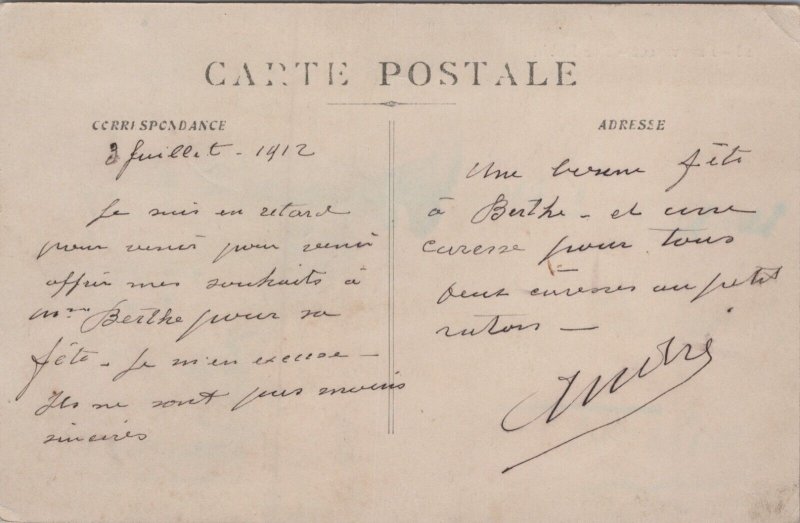 CARTE POSTALE
CORRESPONDANCE
3 Juillet - 1912
Je suis en retard
pour venir pour venir
offrir mes souhaits à
Mme Berthe pour sa
fête - Je m'en excuse -
Ils ne sont pas moins
sincères
ADRESSE
Une bonne fête
à Berthe - et une
caresse pour tous
Deux caresses au petit
ratons -
André